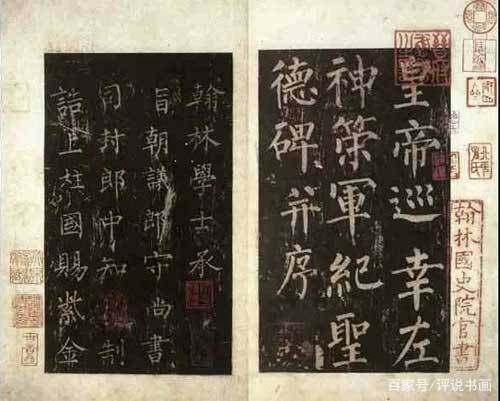 皇帝巡幸左
神策軍紀聖
德碑并序
翰林學士承
旨朝議郎守尚書
司封郎中知制
誥上柱國賜紫金
翰林國史院官書
百家号/评说书画